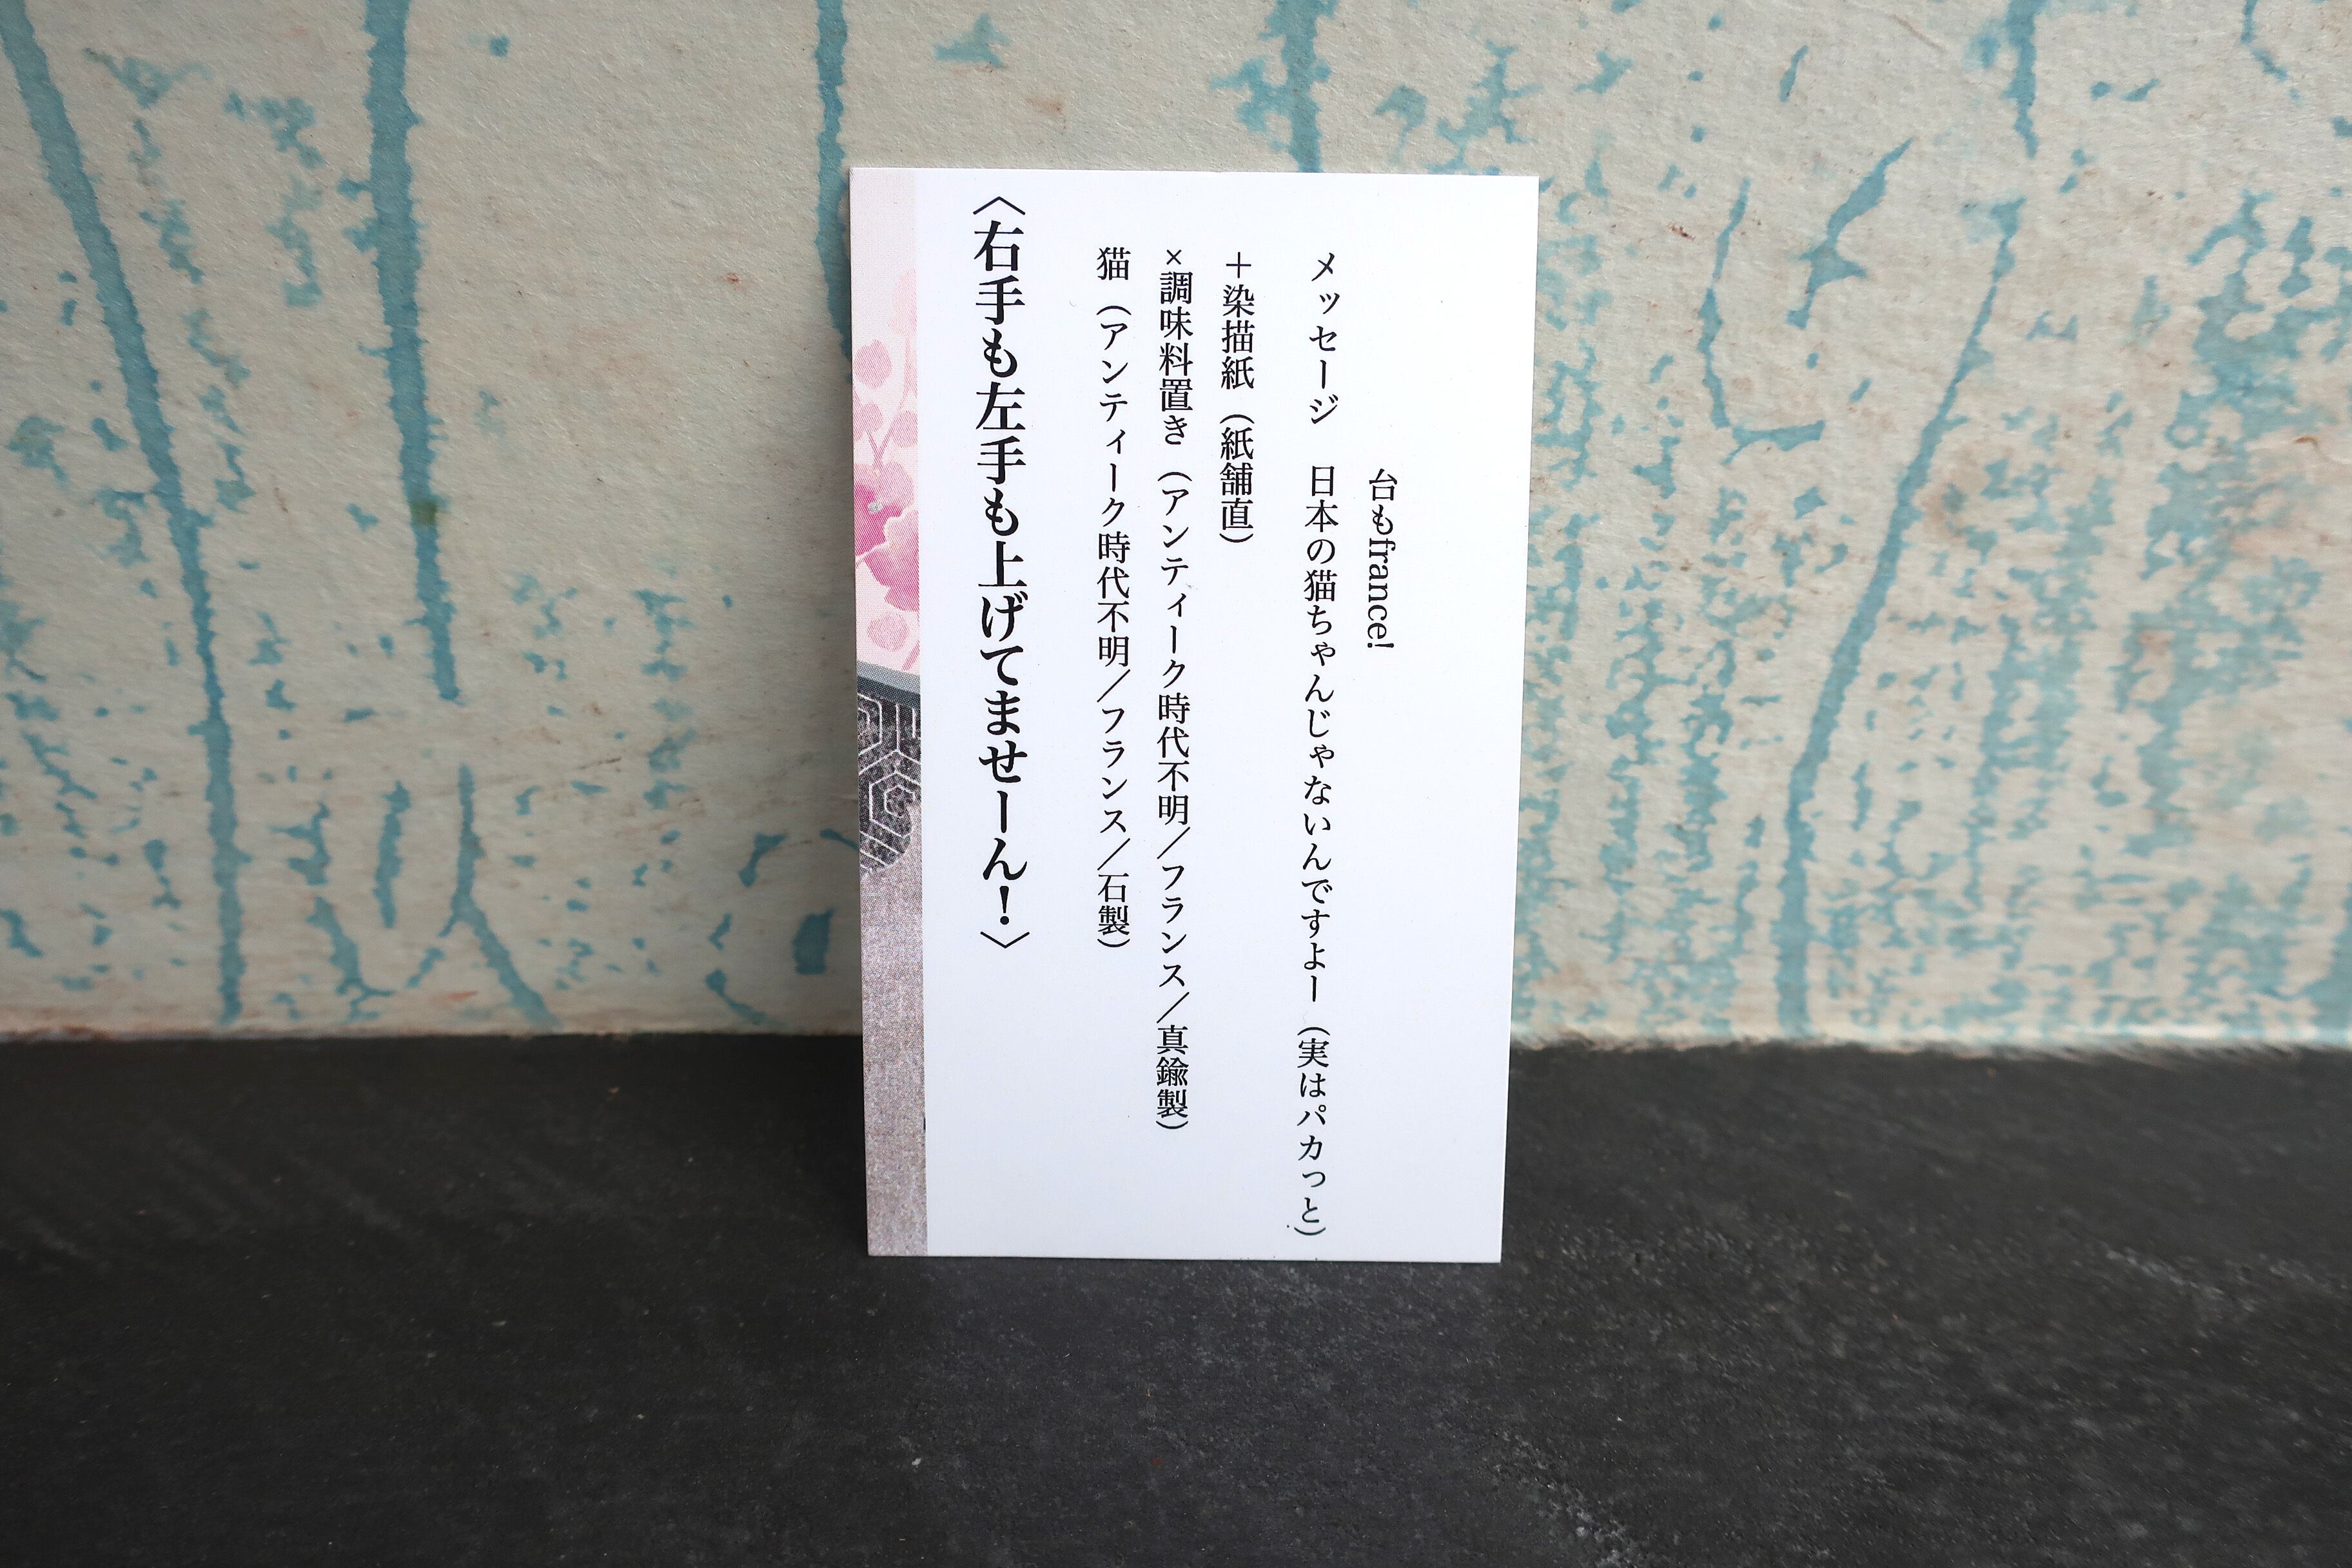 台もfrance!
メッセージ　日本の猫ちゃんじゃないんですよー（実はパカっと）
＋染描紙（紙舗直）
×調味料置き（アンティーク時代不明／フランス／真鍮製）
猫（アンティーク時代不明／フランス／石製）
〈右手も左手も上げてませーん！〉